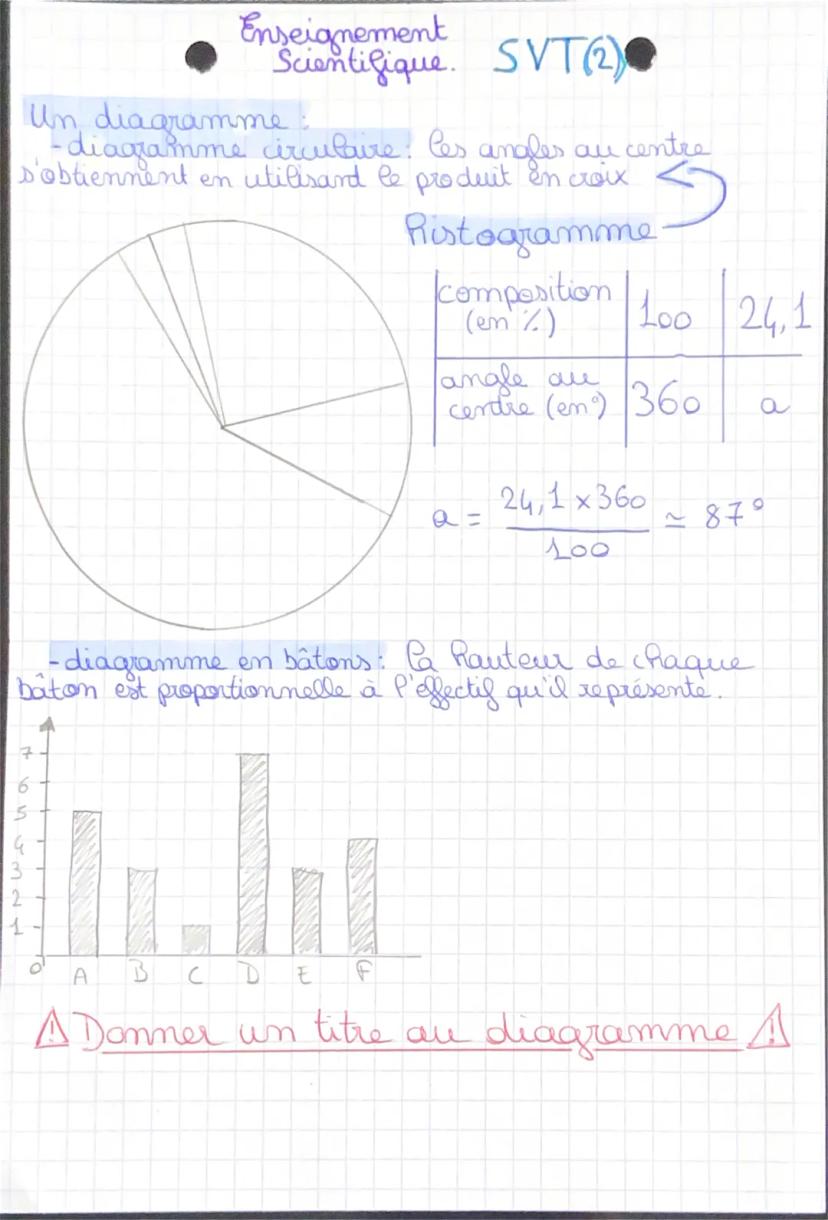 Enseignement
Scientifique.
SVT(2)
Un diagramme :
-diagramme circulaire: les angles au centre
s'obtiennent en utilisant le produit en croix
Histogramme
composition
(en %)
100
24,1
angle au
centre (en°)
360
a
a = 24,1 x 360 / 100 ≃ 87°
-diagramme en bâtons: la hauteur de chaque
bâton est proportionnelle à l'effectif qu'il représente.
7
6
5
4
3
2
1
0
A B C D E F
⚠ Donner un titre au diagramme ⚠